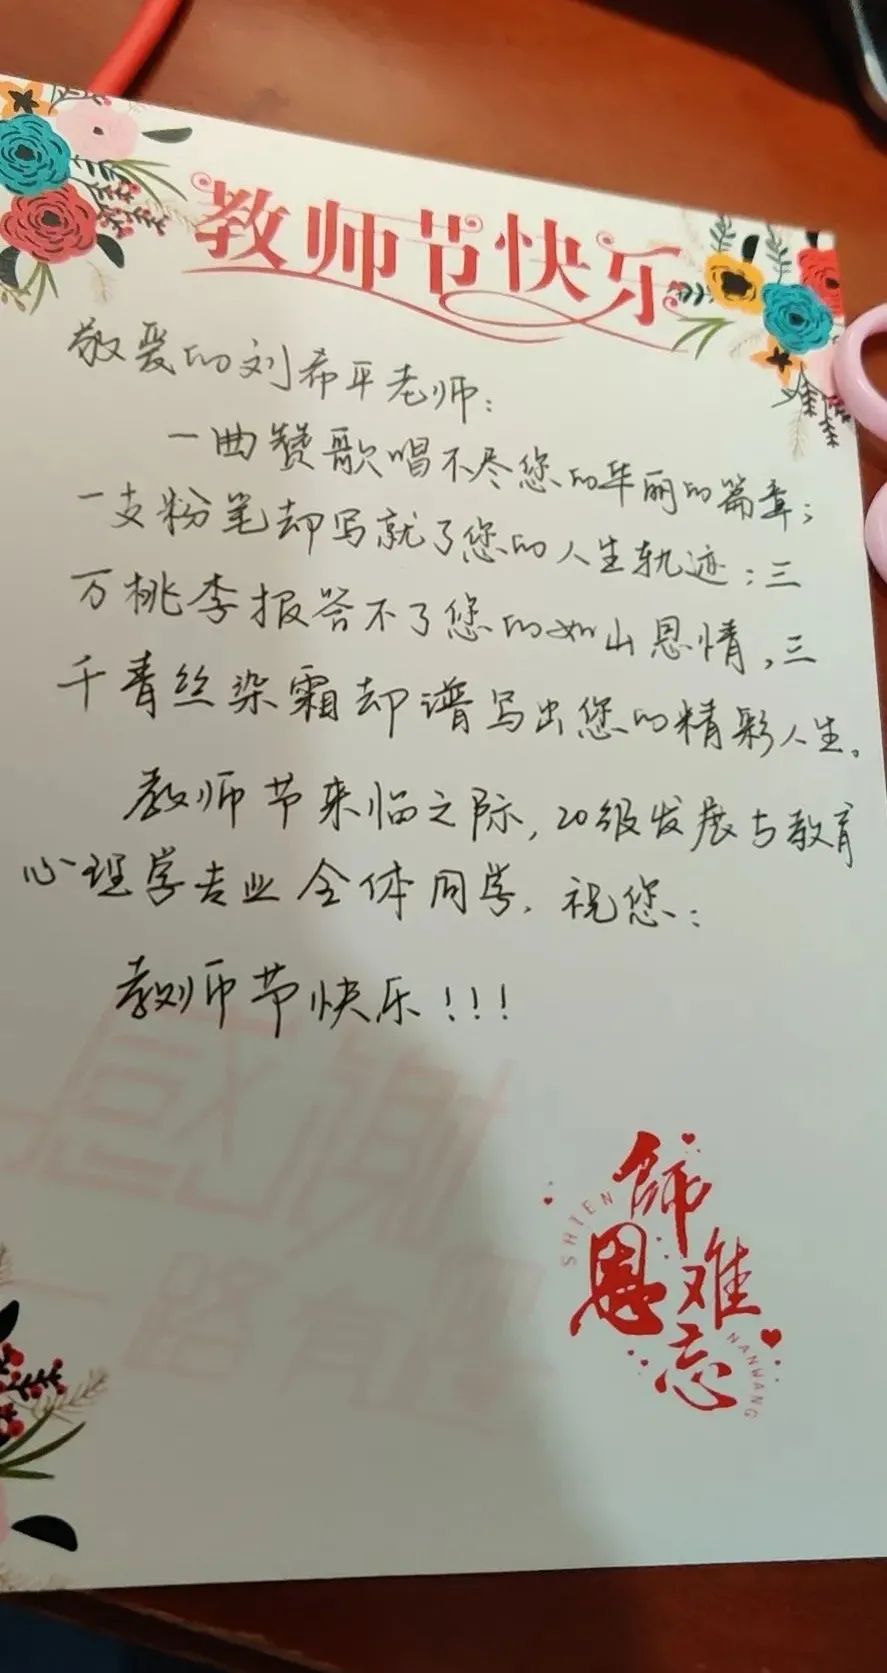 教师节快乐
敬爱的刘希平老师:
一曲赞歌唱不尽您的华丽的篇章;
一支粉笔却写就了您的人生轨迹;三
万桃李报答不了您的如山恩情,三
千青丝染霜却谱写出您的精彩人生。
教师节来临之际,20级发展与教育
心理学专业全体同学,祝您:
教师节快乐!!!
感谢
一路有您
師恩难忘
SHIEN
NANWANG